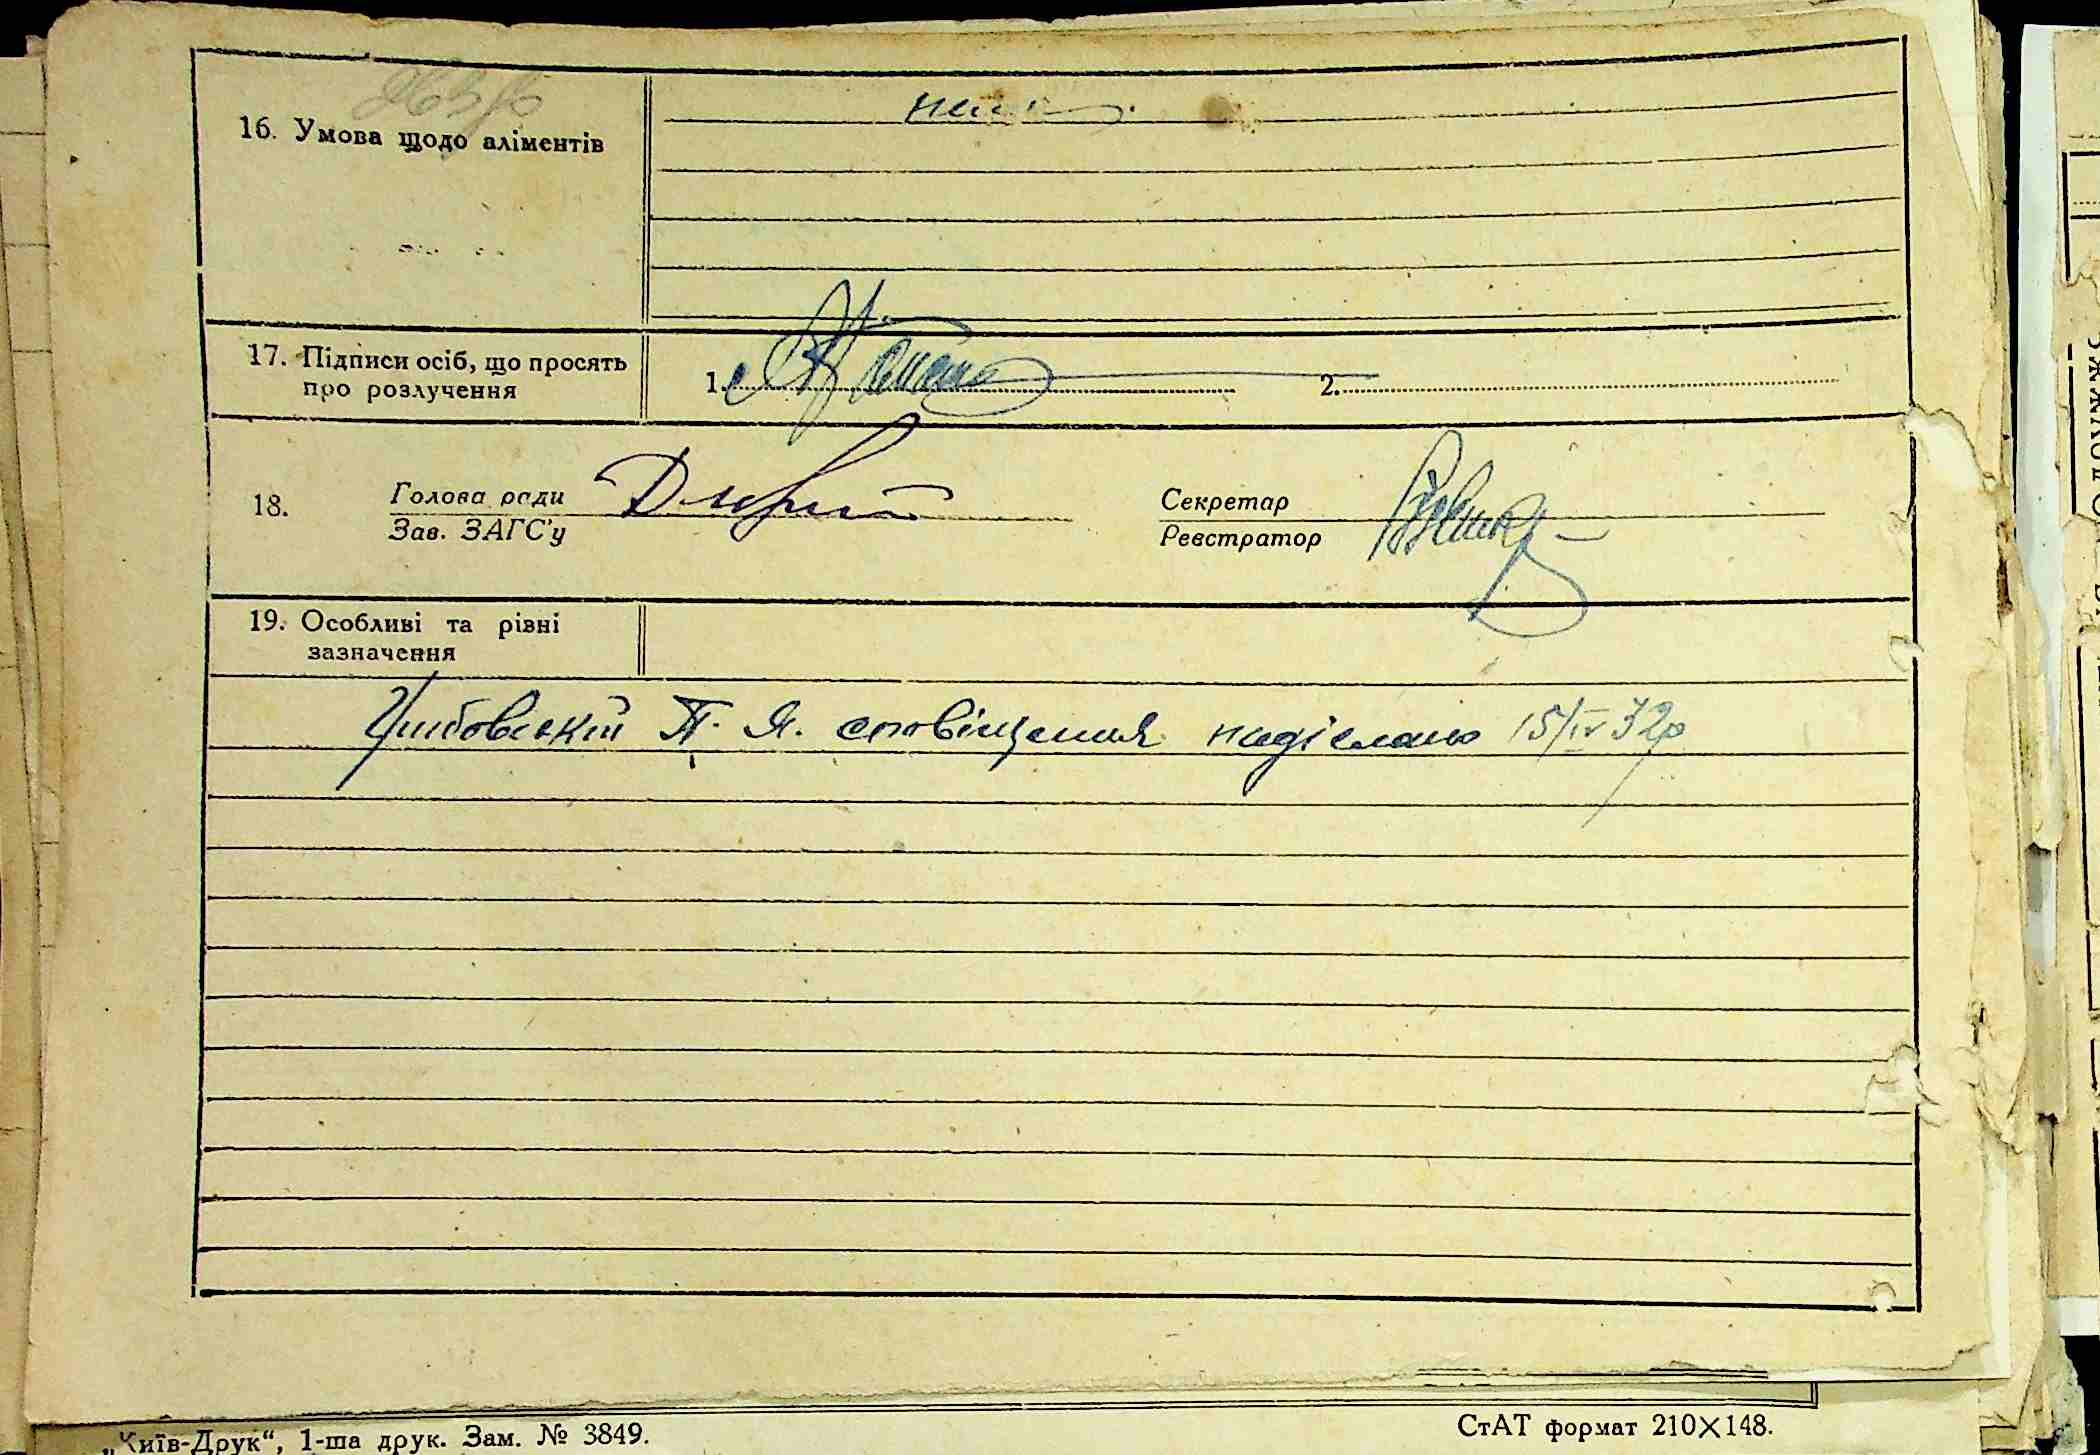 16. Умова щодо аліментів
17. Підписи осіб, що просять
про розлучення
1.
2.
18.
Голова ради
Зав. ЗАГС'у
Секретар
Реєстратор
19. Особливі та рівні
зазначення
П. Я. сповіщення надіслано 15/IV 32р
„Київ-Друк“, 1-ша друк. Зам. № 3849.
СтАТ формат 210×148.